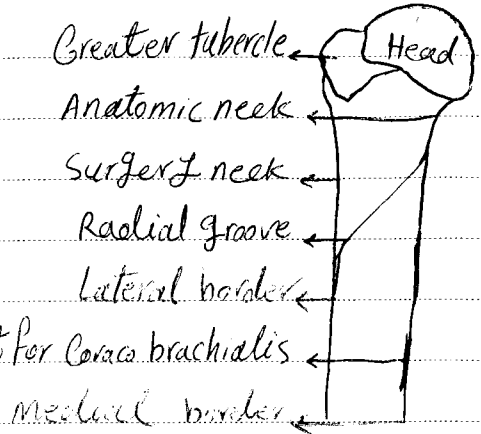 Greater tubercle
Head
Anatomic neek
Surgery neek
Radial groove
Lateral border
for Coraco brachialis
Medial border